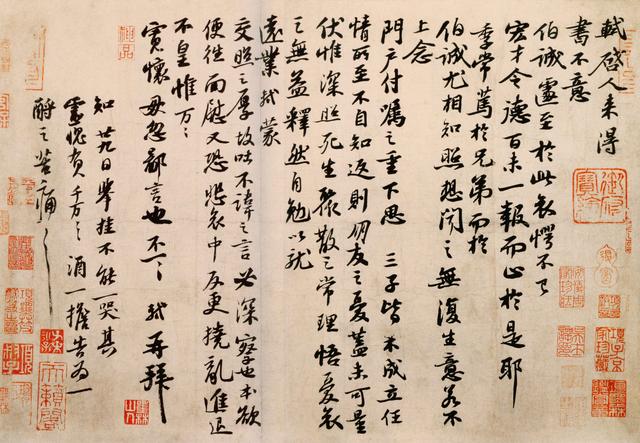 軾啓人來得
書不意
伯誠遽至於此哀愕不已
宏才令德百未一報而止於是耶
季常篤於兄弟而於
伯誠尤相知照想聞之無復生意若不
上念
門戶付囑之重下思三子皆不成立任
情所至不自知返則朋友之憂蓋未可量
伏惟深照死生聚散之常理悟憂哀
之無益釋然自勉以就
遠業軾蒙
交照之厚故吐不諱之言必深察也本欲
便往面慰又恐悲哀中反更撓亂進退
不皇惟万万
寬懷毋忽鄙言也不一一軾再拜
知廿九日舉挂不能一哭其
靈愧負千万千万酒一擔告為一
酹之苦痛苦痛